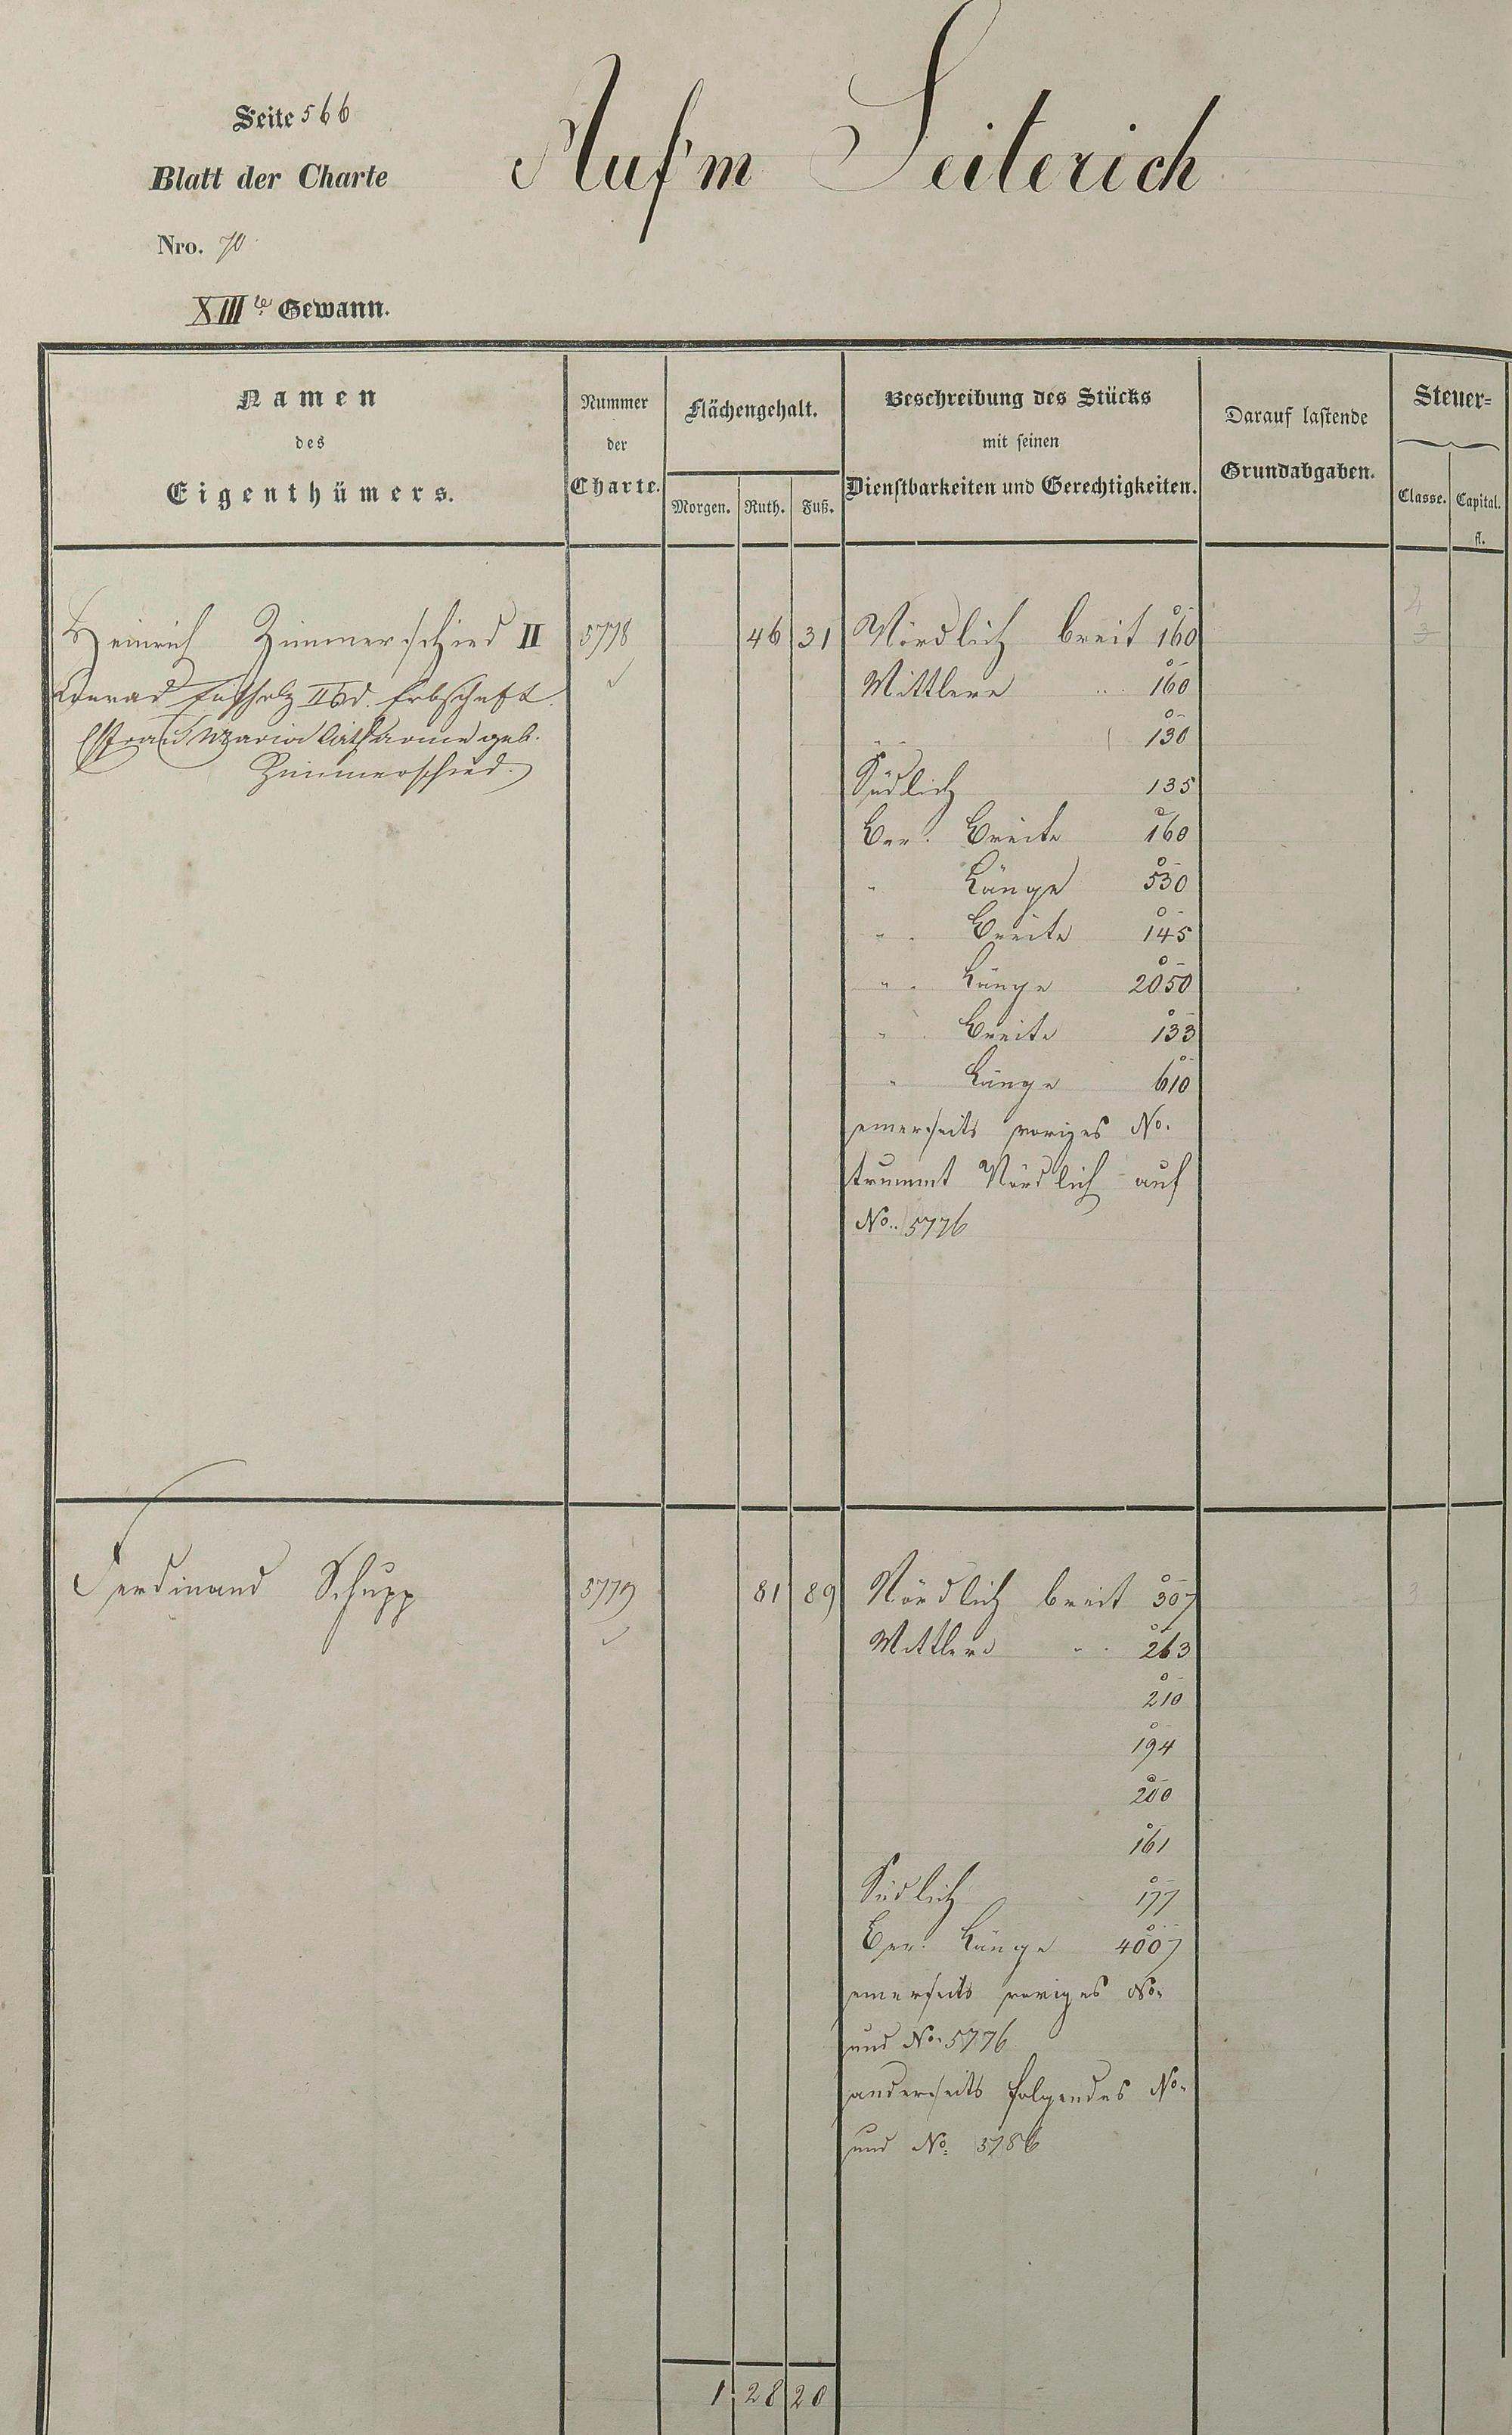 Seite 566
Blatt der Charte
Nro. 70
XIIIte Gewann.
Auf'm Seiterich
Namen
des
Eigenthümers.
Nummer
der
Charte.
Flächengehalt.
Morgen. Ruth. Fuß.
Beschreibung des Stücks
mit seinen
Dienstbarkeiten und Gerechtigkeiten.
Darauf lastende
Grundabgaben.
Steuer=
Classe. Capital.
fl.
Heinrich Zimmerschied II 5778 46 31 Nördlich breit 160
4
3
Conrad IIbd. Erbschaft.
Ehefrau Maria Catharine geb.
Zimmerschied.
Mittlere " 160
130
Südlich 135
Ber. Breite 160
" Länge 530
" Breite 145
" Länge 2050
" Breite 133
" Länge 610
einerseits voriges No.
trummt Nördlich auf
No. 5776
Ferdinand Schupp 5779 81 89 Nördlich breit 307 3
Mittlere " 263
210
194
200
161
Südlich 177
Ber. Länge 4007
einerseits voriges No.
und No. 5776
anderseits folgendes No.
und No. 5786
1 28 20